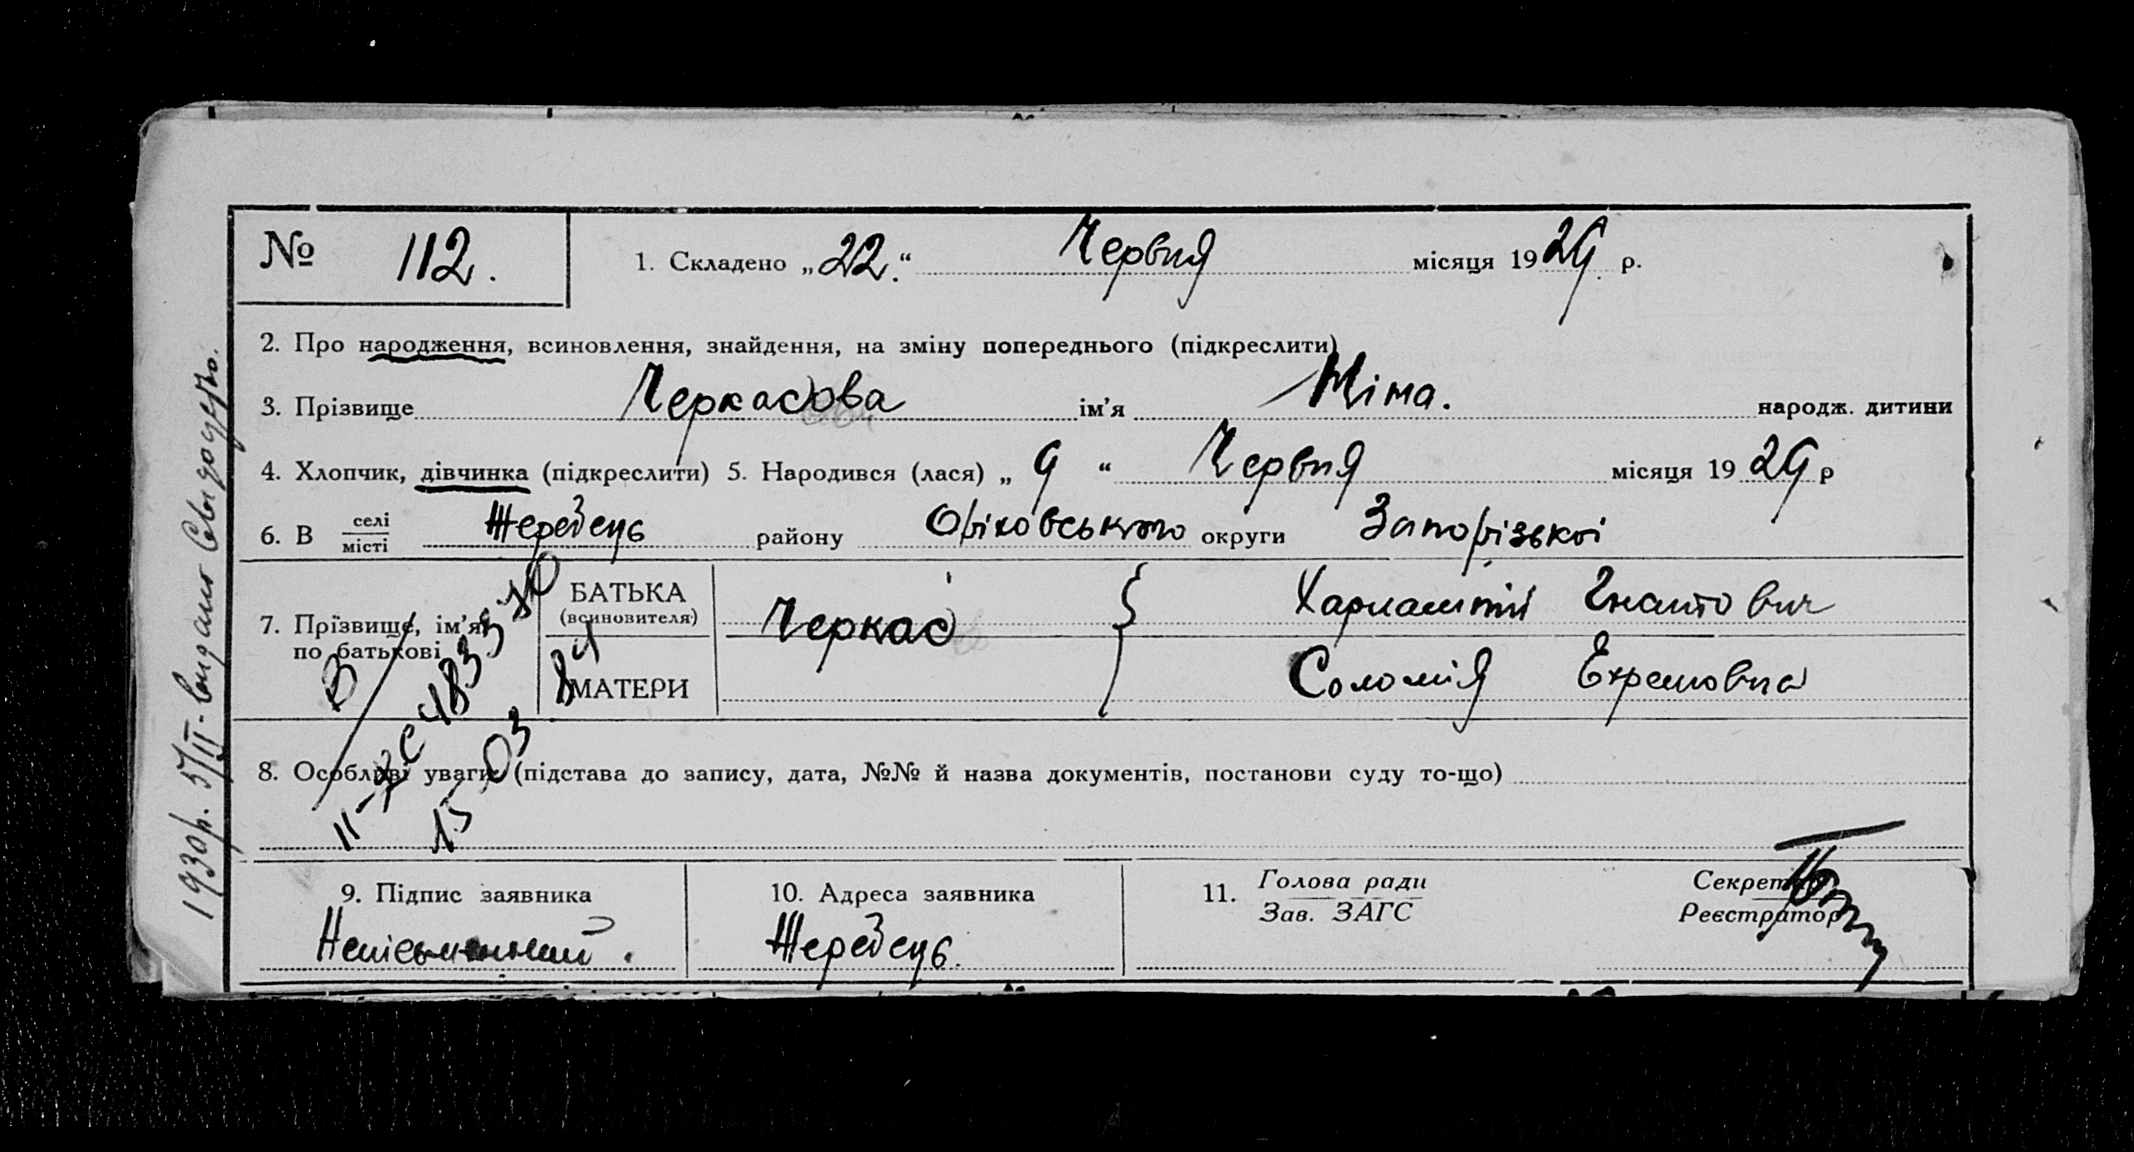 № 112. 1. Складено „22.“ Червня місяця 1929 р.
2. Про народження, всиновлення, знайдення, на зміну попереднього (підкреслити)
3. Прізвище Черкасова ім'я Ніна. народж. дитини
4. Хлопчик, дівчинка (підкреслити) 5. Народився (лася) „ 9 “ Червня місяця 1929 р
6. В селі місті Жеребець району Оріховського округи Запорізької
7. Прізвище, ім'я по батькові
БАТЬКА (всиновителя) Черкас Харлампій Гнатович
МАТЕРИ Соломія Ехремовна
8. Особливі уваги (підстава до запису, дата, №№ й назва документів, постанови суду то-що)
15-03 84
9. Підпис заявника
Неписьменний.
10. Адреса заявника
Жеребець.
11. Голова ради
Зав. ЗАГС
Секретар
Реєстратор
1930р. 5/II- видано Свидоцтво.